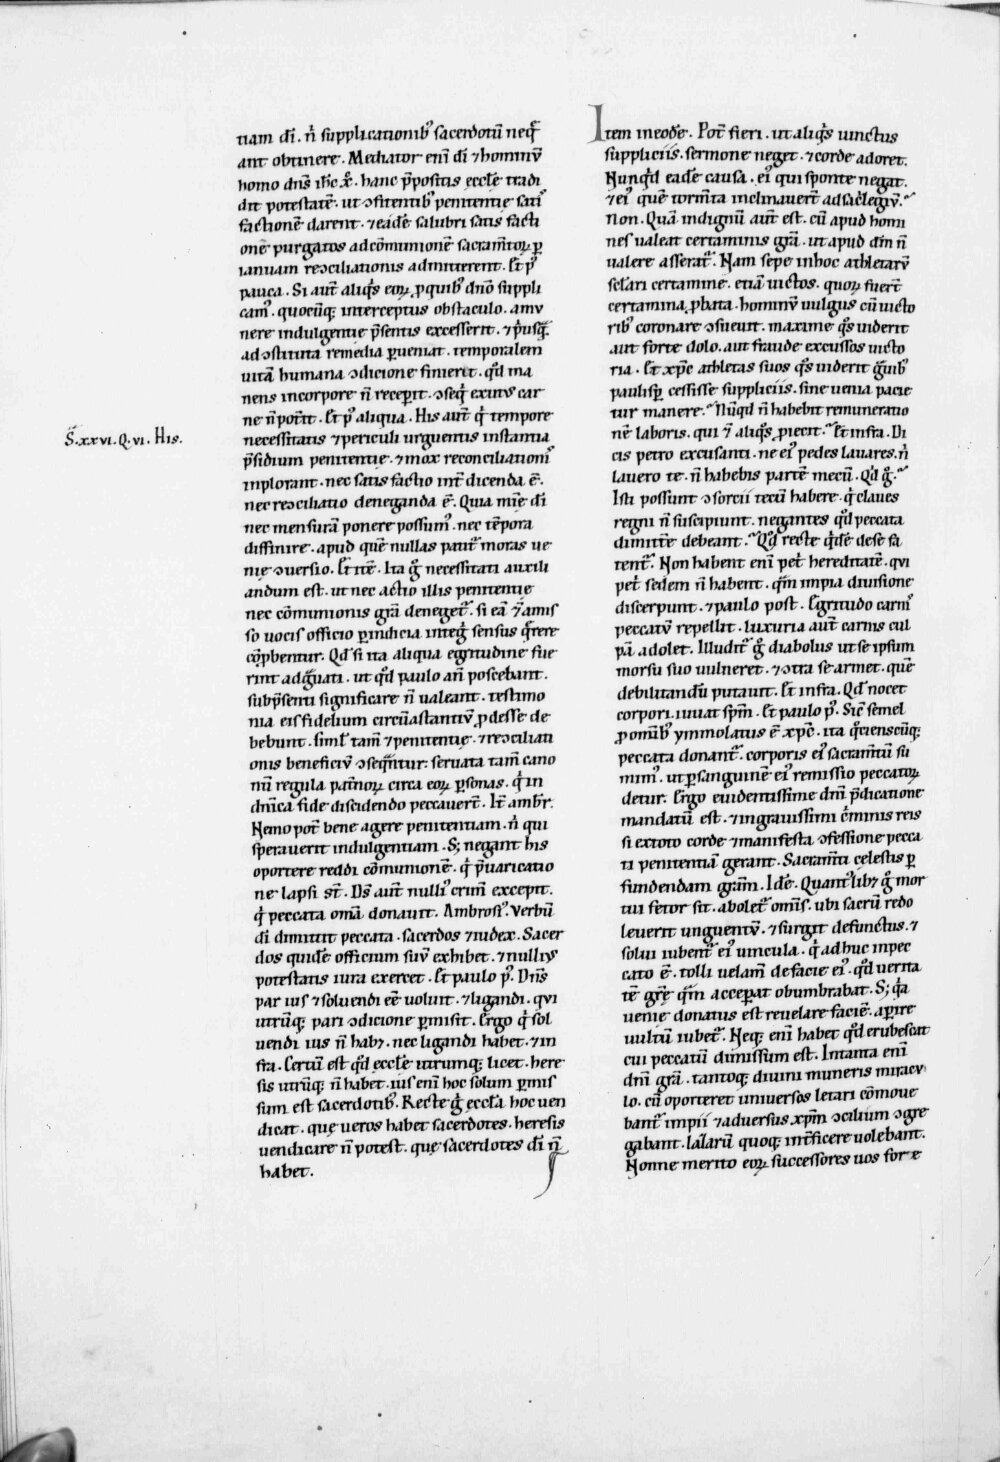 tiam dī. n̄ supplicationib; sacerdotū neq̄
ant obtinere. Mediator enī dī ⁊ hominū
homo dn̄s ih̄c x̄p̄. hanc p̄positis ecclīe tradi
dit potestatē. ut ɔfitentib; penitentię satis
factionē darent. ⁊ eadē salubri satisfacti
one purgatos ad cōmunionē sacram̄toꝝ ꝑ
ianuam recɔciliationis admitterent. Et p'
pauca. Si aut̄ aliq̄s eoꝝ ꝓ quib; dn̄o suppli
cam'. quocūq; interceptus obstaculo. a mu
nere indulgentię p̄sentis excesserit. ⁊ p'usq̄
ad ɔstituta remedia ꝑueniat. temporalem
uitā humana ɔdicione finierit. qd̄ ma
nens in corpore n̄ receꝑit. ɔseq̄ exutus car
ne n̄ pot̄it. Et p' aliqua. His aut̄ q̄ tempore
necessitatis ⁊ periculi urguentis instantia
p̄sidium penitentię. ⁊ mox reconciliationis
inplorant. nec satisfactio int̄dicenda ē.
nec recɔciliatio deneganda ē. Quia mīe dī
nec mensurā ponere possum'. nec tēpora
diffinire. apud quē nullas patit̄ moras ue
nię ɔuersio. Et itē. Ita g° necessitati auxili
andum est. ut nec actio illis penitentię
nec cōmunionis gr̄a deneget̄. si eā ⁊ amis
so uocis officio ꝑ indicia integ̅ sensus q̄rere
cōp̄bentur. Qd̄ si ita aliqua egritudine fue
rint adg̅uati. ut qd̄ paulo an̄ poscebant.
sub p̄senti significare n̄ ualeant. testimo
nia eis fidelium circūastantiū ꝓdesse de
bebunt. simł tam̄ ⁊ penitentię. ⁊ recɔciliati
onis beneficiū ɔseqn̄tur: seruata tam̄ cano
nū regula pat̄noꝝ circa eoꝝ ꝑsonas. q̄ in
dn̄ica fide discidendo peccauert̄. It̄ ambr̄.
Nemo pot̄ bene agere penitentiam. n̄ qui
sperauerit indulgentiam. S; negant his
oportere reddi cōmunionē. q̄ p̄uaricatio
ne lapsi st̄. Ds̄ aut̄ nulli' crim̄ excepit.
q̄ peccata om̄ia donauit. Ambrosi'. Verbū
dī dimittit peccata. sacerdos ⁊ iudex. Sacer
dos quidē officium suū exhibet. ⁊ nullius
potestatis iura exercet. Et paulo p'. Dn̄s
par ius ⁊ soluendi eē uoluit. ⁊ ligandi. qui
utrūq; pari ɔdicione ꝑmisit. Ergo q̄ sol
uendi ius n̄ habꝫ. nec ligandi habet. ⁊ in
fra. Certū est qd̄ ecclīe utrumq; licet. here
sis utrūq; n̄ habet. ius enī hoc solum ꝑmis
sum est sacerdotib;. Recte g° eccl̄a hoc uen
dicat. quę ueros habet sacerdotes. heresis
uendicare n̄ potest. quę sacerdotes dī n̄
habet.
S̄. xxvi. Q. vi. His.
Item in eodē. Pot̄ fieri. ut aliq̄s uinctus
suppliciis. sermone neget. ⁊ corde adoret.
Nunqd̄ eadē causa. ei' qui sponte negat.
⁊ ei' quē torm̄ta inclinauert̄ ad sac̄legiū.
Non. Quā indignū aut̄ est. cū apud homi
nes ualeat certaminis gr̄a. ut apud dm̄ n̄
ualere asserat̄. Nam sepe in hoc athletarū
sęlari certamine. etiā uictos. quoꝝ fuert̄
certamina ꝓbata. hominū uulgus cū uicto
rib; coronare ɔsueuit. maxime q̄s uiderit
aut forte dolo. aut fraude excussos uicto
ria. Et xp̄c athletas suos q̄s uiderit g̅uib;
paulisꝑ cessisse suppliciis. sine uenia pacie
tur manere. Nūqd̄ n̄ habebit remuneratio
nē laboris. qui ⁊ aliq̄s ꝓiecit. Et infra. Di
cis petro excusanti. ne ei' pedes lauares. n̄
lauero te. n̄ habebis partē mecū. Qd̄ g°.
Isti possunt ɔsorcii tecū habere. q̄ claues
regni n̄ suscipiunt. negantes qd̄ peccata
dimitt̄e debeant. Qd̄ recte q̄dē de se fa
tent̄. Non habent enī pet̄ hereditatē. qui
pet̄ sedem n̄ habent. qm̄ impia diuisione
discerpunt. ⁊ paulo post. Egritudo carnis
peccatū repellit. luxuria aut̄ carnis cul
pā adolet. Illudit̄ g° diabolus ut se ipsum
morsu suo uulneret. ⁊ ɔtra se armet. quē
debilitandū putauit. Et infra. Qd̄ nocet
corpori. iuuat sp̄m. Et paulo p'. Sic̄ semel
ꝓ omīb; ymmolatus ē xp̄c. ita q̄cienscūq;
peccata donant̄. corporis ei' sacram̄tū su
mim'. ut ꝑ sanguinē ei' remissio peccatoꝝ
detur. Ergo euidentissime dn̄i p̄dicatione
mandatū est. ⁊ in grauissimi c̄minis reis
si ex toto corde ⁊ manifesta ɔfessione pecca
ti penitentiā gerant. Sacram̄ti celestis ꝑ
fundendam gram̄. Idē. Quant'libꝫ g° mor
tui fetor sit. abolet̄ om̄is. ubi sacrū redo
leuerit unguentū. ⁊ surgit defunctus. ⁊
solui iubent̄ ei' uincula. q̄ adhuc in pec
cato ē. tolli uelam̄ de facie ei'. qd̄ uerita
tē grę qm̄ acceꝑat obumbrabat. S; q̄a
uenie donatus est reuelare faciē. aꝑire
uultū iubet̄. Neq; enī habet qd̄ erubescat
cui peccatū dimissum est. In tanta enī
dn̄i gr̄a. tantoq; diuini muneris miracu
lo. cū oporteret uniuersos letari cōmoue
bant̄ impii ⁊ aduersus xpm̄ ɔcilium ɔgre
gabant. lazarū quoq; int̄ficere uolebant.
Nonne merito eoꝝ successores uos fore